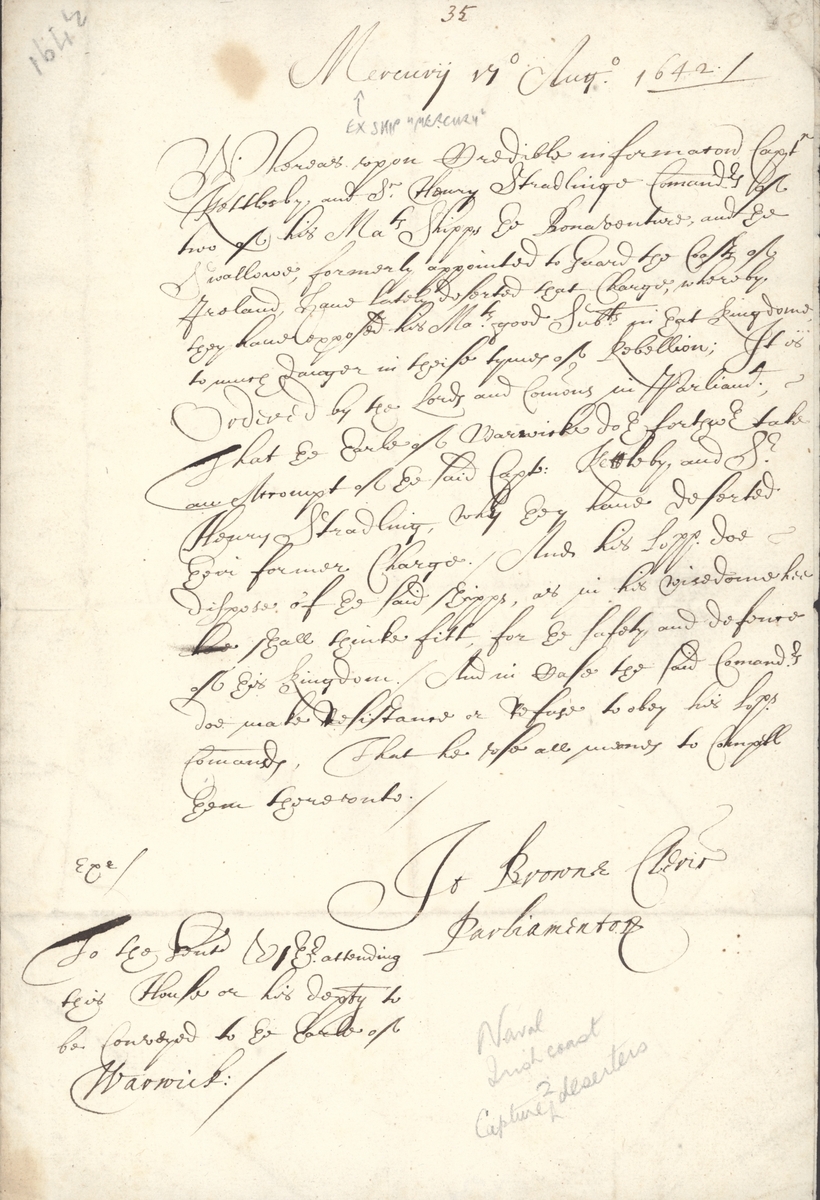 35
1642
Mercurij 17º Augº. 1642 /
EX SHIP "MERCURY"
Whereas upon Credible informacon Captn
Kettleby, and Sr Henry Stradlinge Comandrs of
two of his Mats Shipps the Bonaventure, and the
Swallowe, formerly appointed to guard the Coasts of
Ireland, have lately deserted that Charge, whereby
they have exposed his Mats good Subts in that kingdome
to much danger in theise tymes of Rebellion; It is
Ordered by the Lords and Comons in Parliamt,
That the Earle of Warwicke doth forthwth take
an Accompt of the said Capt: Kettleby, and Sr
Henry Stradling, why they have deserted
their former Charge. / And his Lopp. doe
dispose of the said shipps, as in his wisedome hee
shall thinke fitt, for the safety and defence
of this kingdom. / And in Case the said Comandrs
doe make Resistance or Refuse to obey his Lopps
Comands, That he use all meanes to Compell
them thereunto. /
Exr /
Jo Browne Cleric
Parliamentor
To the Gent Usher attending
this House or his depty to
be Conveyed to the Earle of
Warwick: /
Naval
Irish coast
Capture 2 deserters